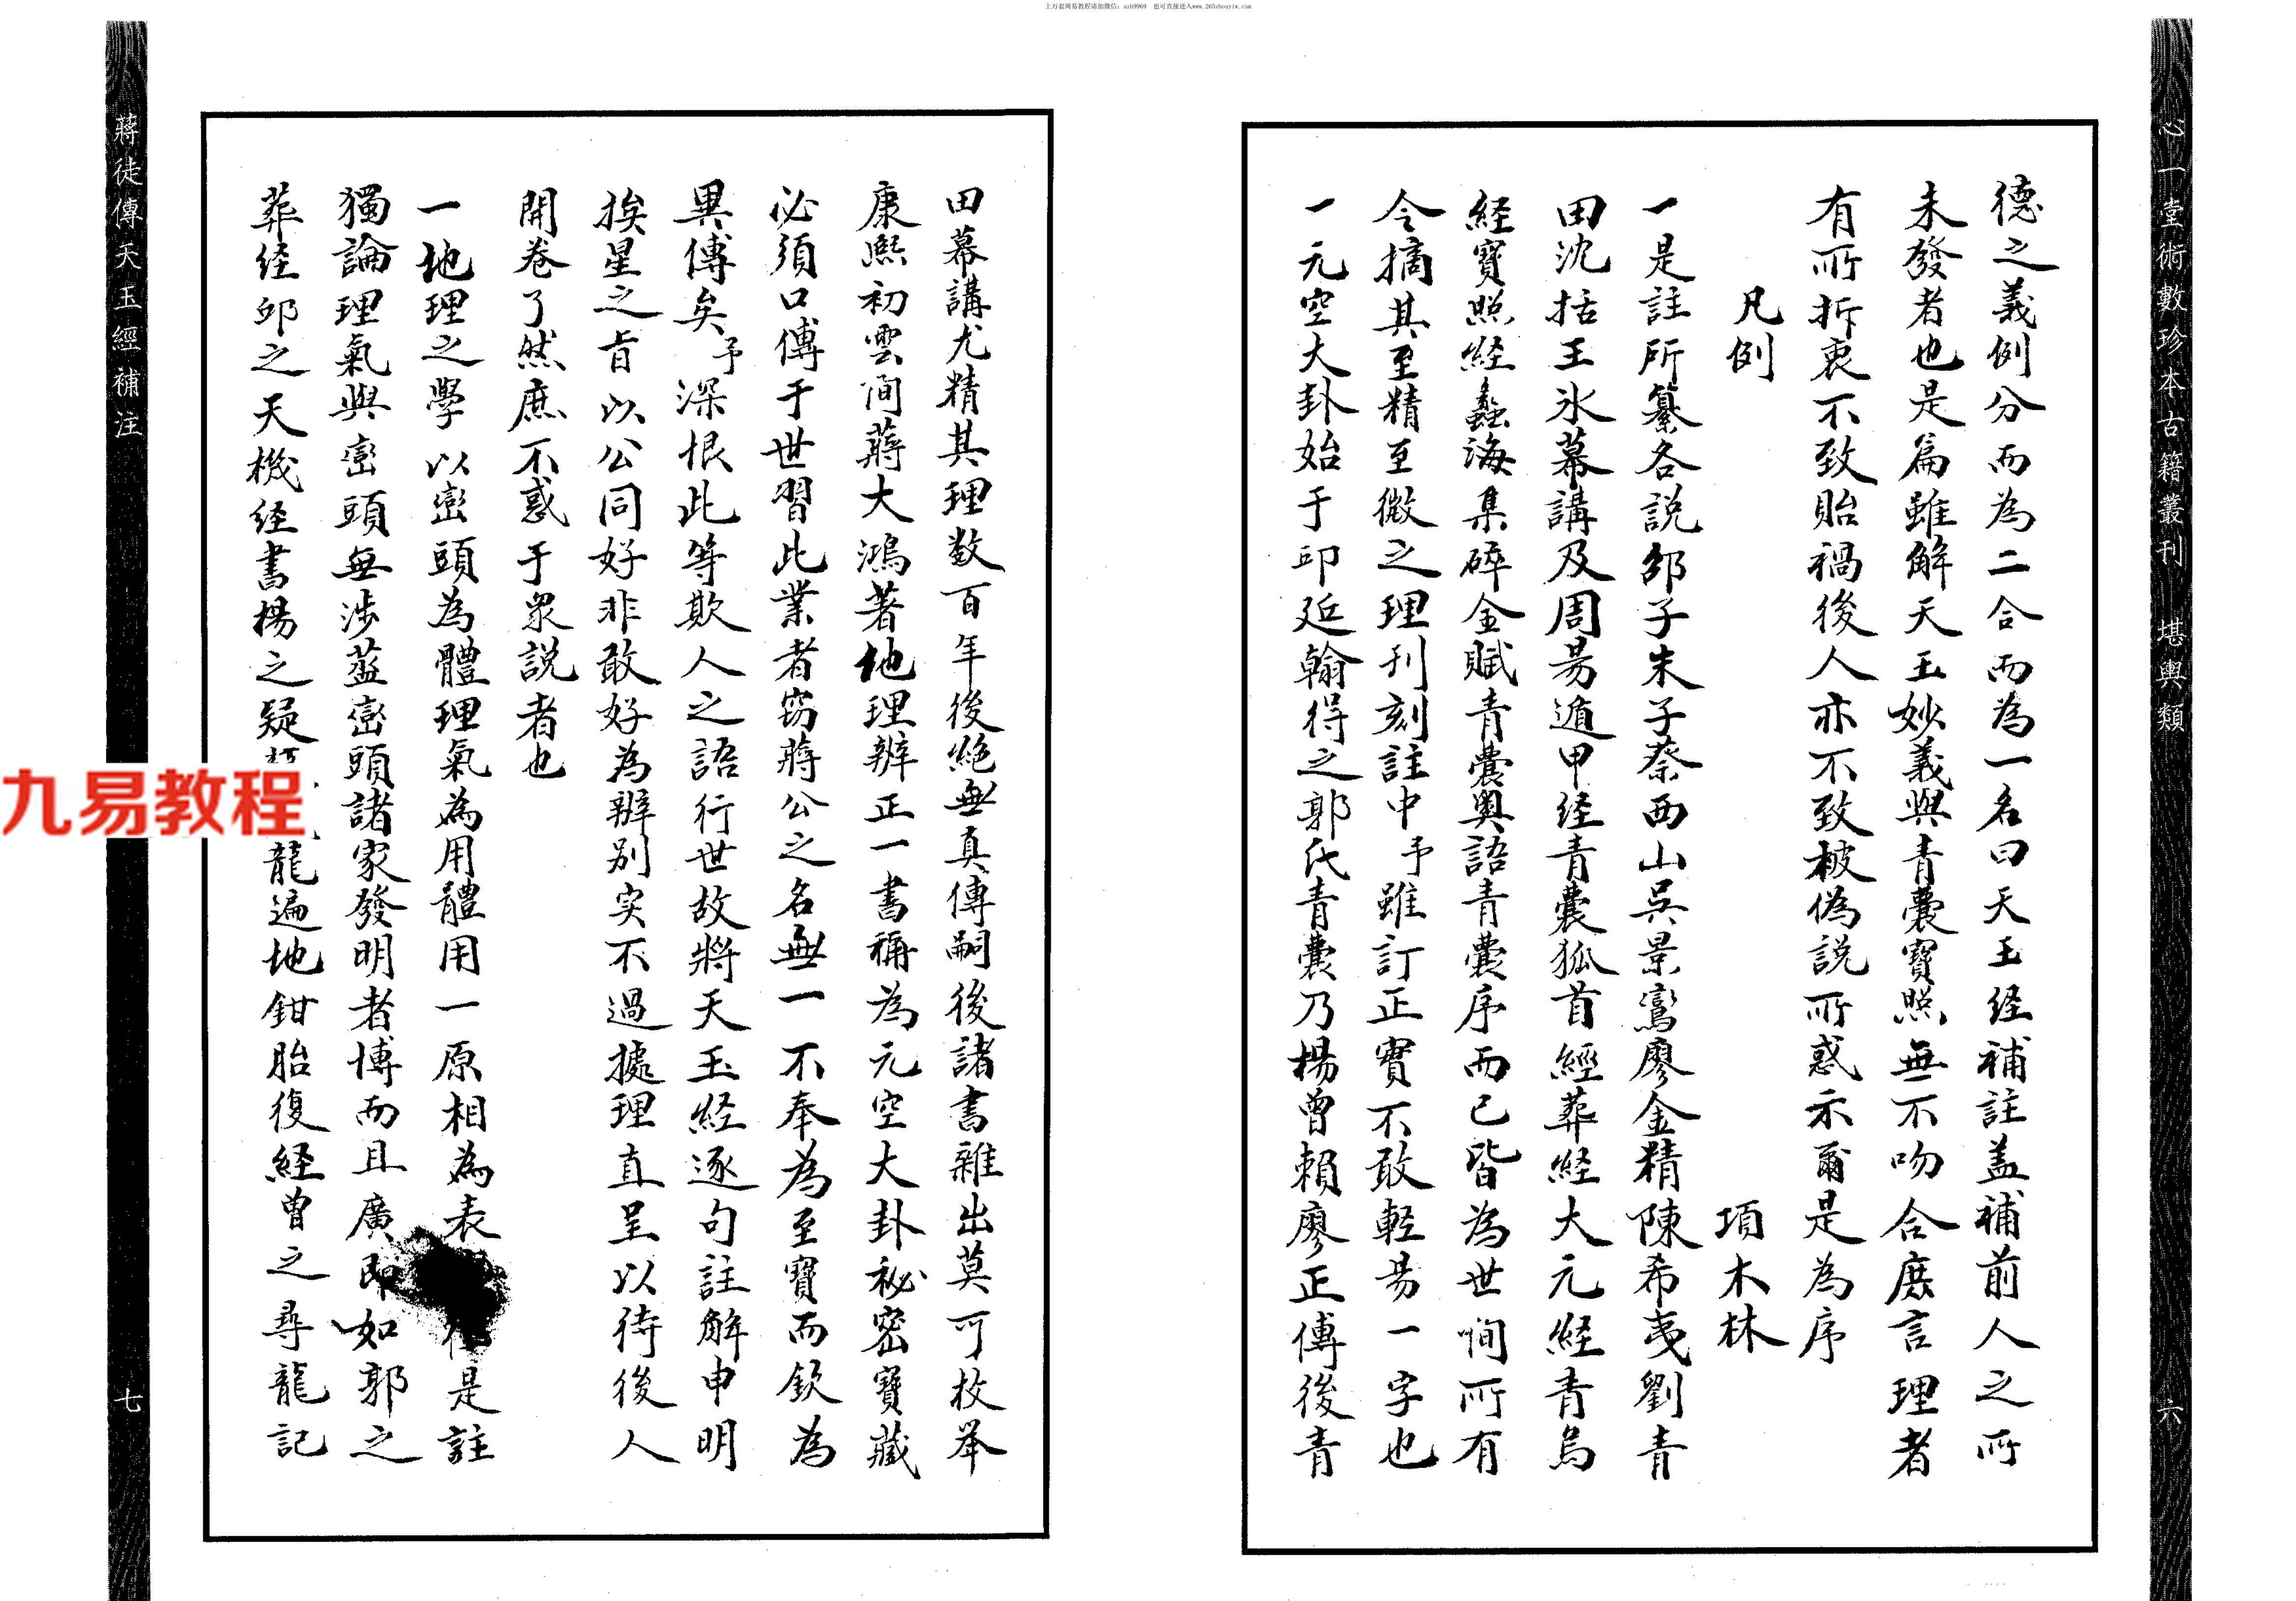 上万套周易教程请加微信：azh9969 也可直接进入www.265zhouyiw.com
心一堂術數珍本古籍叢刊 堪輿類
六
德之義例分而為二合而為一名曰天玉经補註盖補前人之所
未發者也是篇雖解天玉妙義與青囊寶照無不吻合庶言理者
有所折衷不致貽禍後人亦不致被偽説所惑示爾是為序
凡例 項木林
一是註所纂各説邵子朱子蔡西山吳景鸞廖金精陳希夷劉青
田沈括王氷幕講及周易遁甲经青囊狐首經葬经大元経青烏
経寶照経蠡海集碎金賦青囊奥語青囊序而已皆為世間所有
今摘其至精至微之理刊刻註中予雖訂正實不敢輕易一字也
一元空大卦始于邱延翰得之郭氏青囊乃楊曾賴廖正傳後青
田幕講尤精其理数百年後絶無真傳嗣後諸書雜出莫可枚举
康熙初雲间蔣大鴻著地理辨正一書稱為元空大卦秘密寶藏
必須口傳于世習此業者窃蔣公之名無一不奉為至寶而欽為
異傳矣予深恨此等欺人之語行世故將天玉经逐句註解申明
挨星之旨以公同好非敢好為辨别实不過據理直呈以待後人
開卷了然庶不惑于衆説者也
一地理之學以巒頭為體理氣為用體用一原相為表是註
獨論理氣與巒頭無涉葢巒頭諸家發明者博而且廣即如郭之
葬经邱之天機经書楊之疑龍遍地鉗胎復经曾之尋龍記
蔣徒傳天玉經補注
七
九易教程